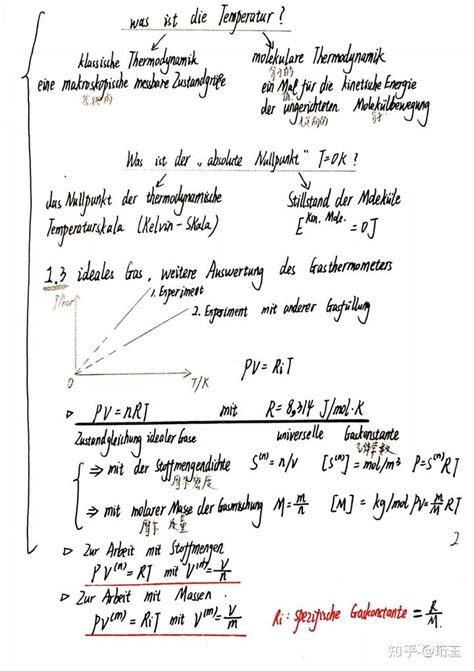 was ist die Temperatur?
klassische Thermodynamik
eine makroskopische messbare Zustandgröße
molekulare Thermodynamik
ein Maß für die kinetische Energie
der ungerichteten Molekülbewegung
Was ist der „absolute Nullpunkt" T=0K?
das Nullpunkt der thermodynamische
Temperaturskala (Kelvin-Skala)
Stillstand der Moleküle
E^{kin. Mole.} = 0J
1.3 ideales Gas, weitere Auswertung des Gasthermometers
P/bar
1. Experiment
2. Experiment mit anderer Gasfüllung
0
T/K
PV = RiT
▷ PV = nRT mit R = 8,314 J/mol·K
Zustandgleichung idealer Gase universelle Gaskonstante
⇒ mit der Stoffmengendichte S^{(n)} = n/V [S^{(n)}] = mol/m³ P = S^{(n)}RT
摩尔密度
⇒ mit molarer Masse der Gasmischung M = m/n [M] = kg/mol PV = m/M RT
摩尔质量
▷ Zur Arbeit mit Stoffmengen
PV^{(n)} = RT mit V^{(n)} = V/n
▷ Zur Arbeit mit Massen
PV^{(m)} = RiT mit V^{(m)} = V/m
Ri: spezifische Gaskonstante = R/M.
2
知乎 @珩玊